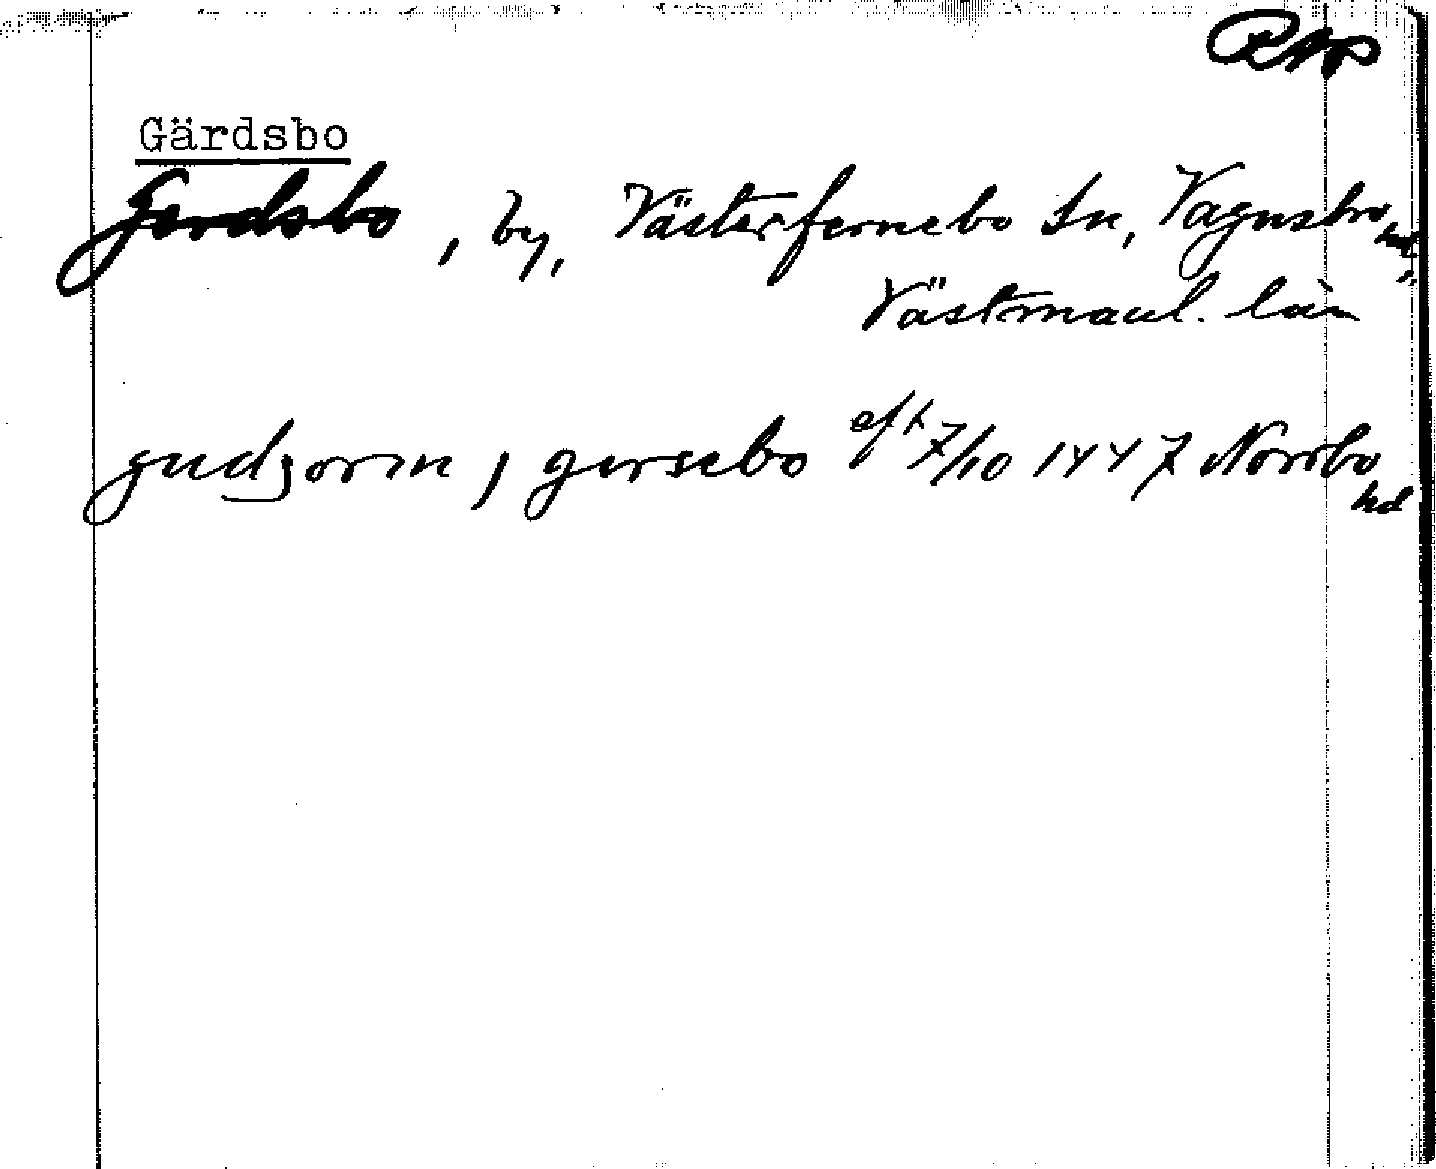 RAP
Gärdsbo
Gerdsbo, by, Västerfernebo sn, Vagnsbro hd,
Västmanl. län
gudzorm j gersebo eft 7/10 1447 Norrbo hd